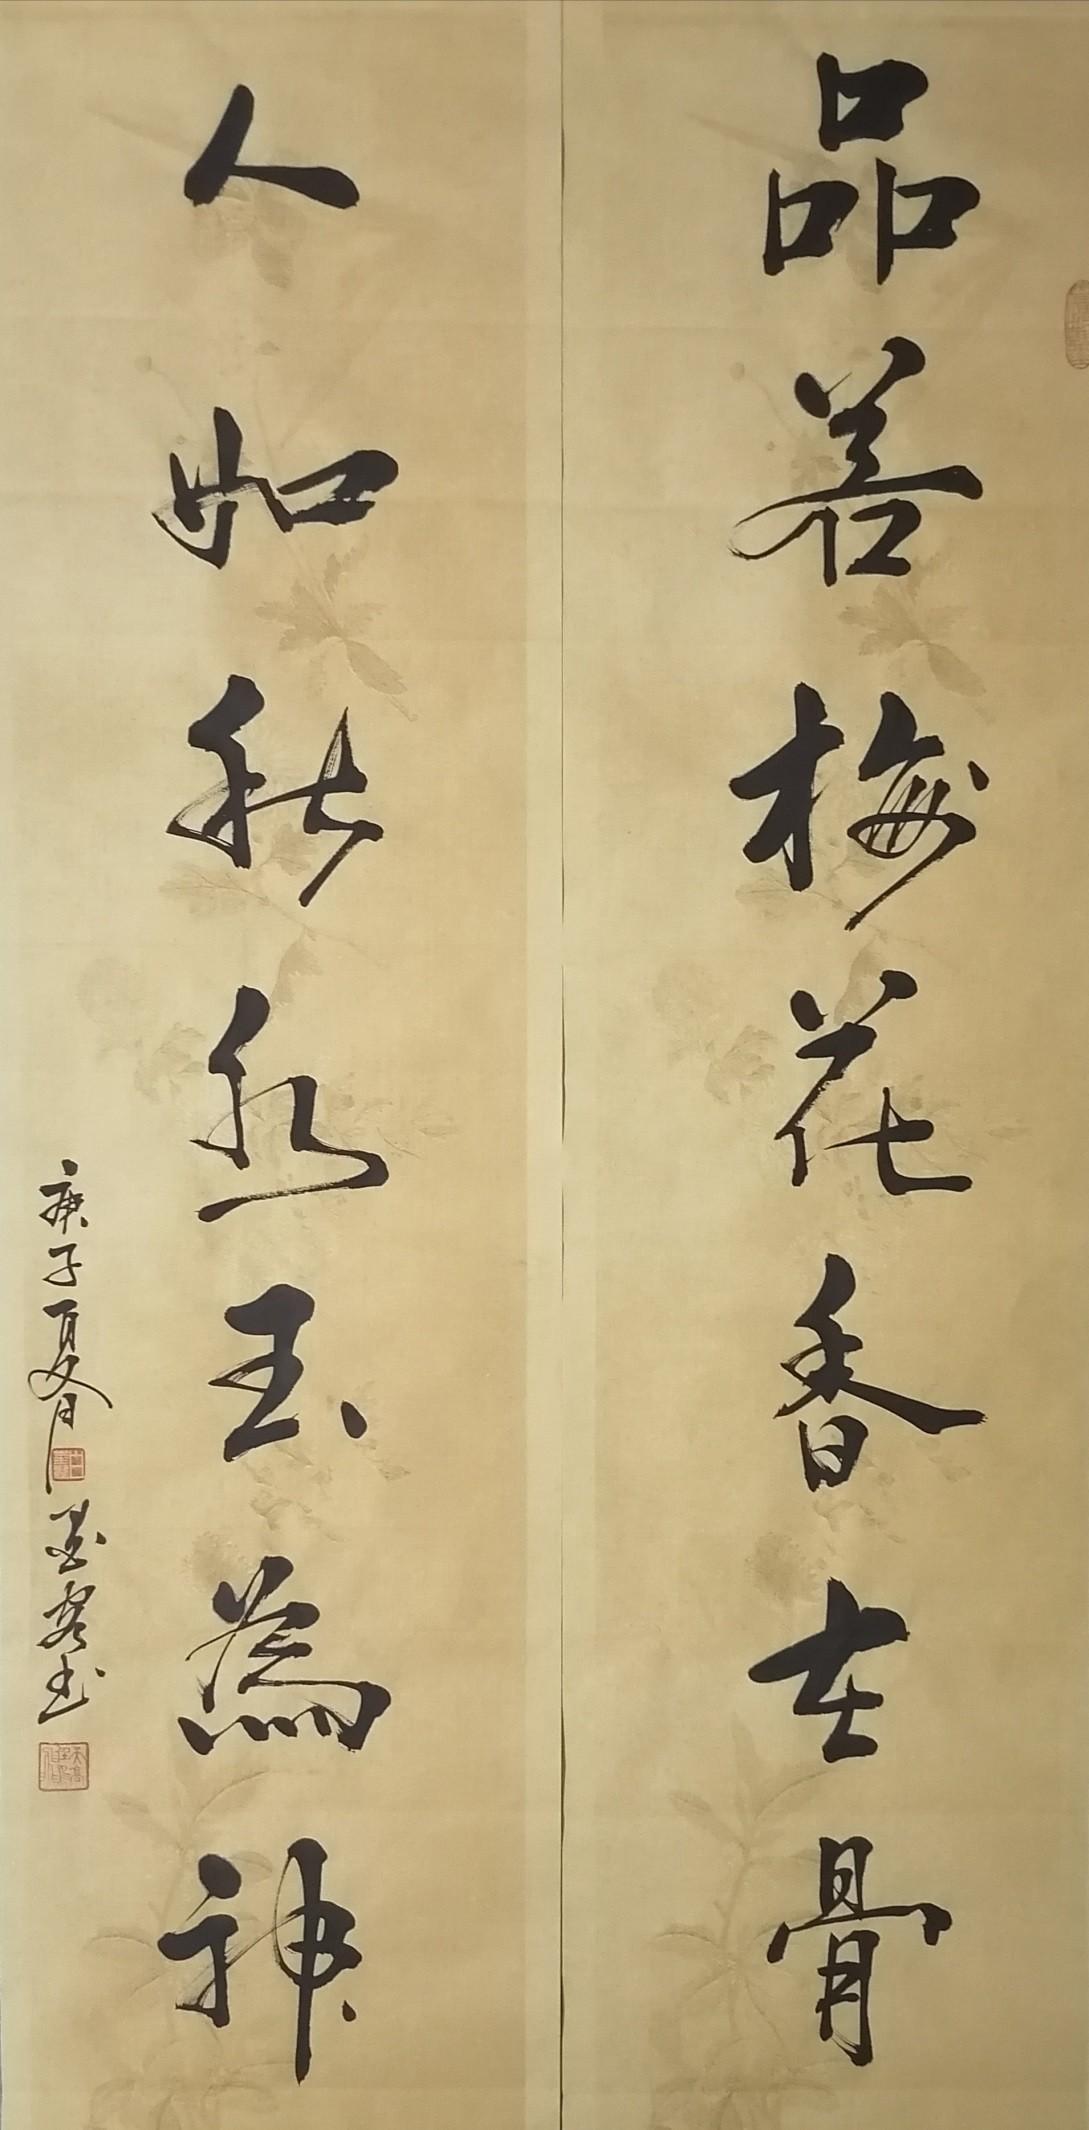 品若梅花香在骨
人如秋水玉為神
庚子夏月
墨客书